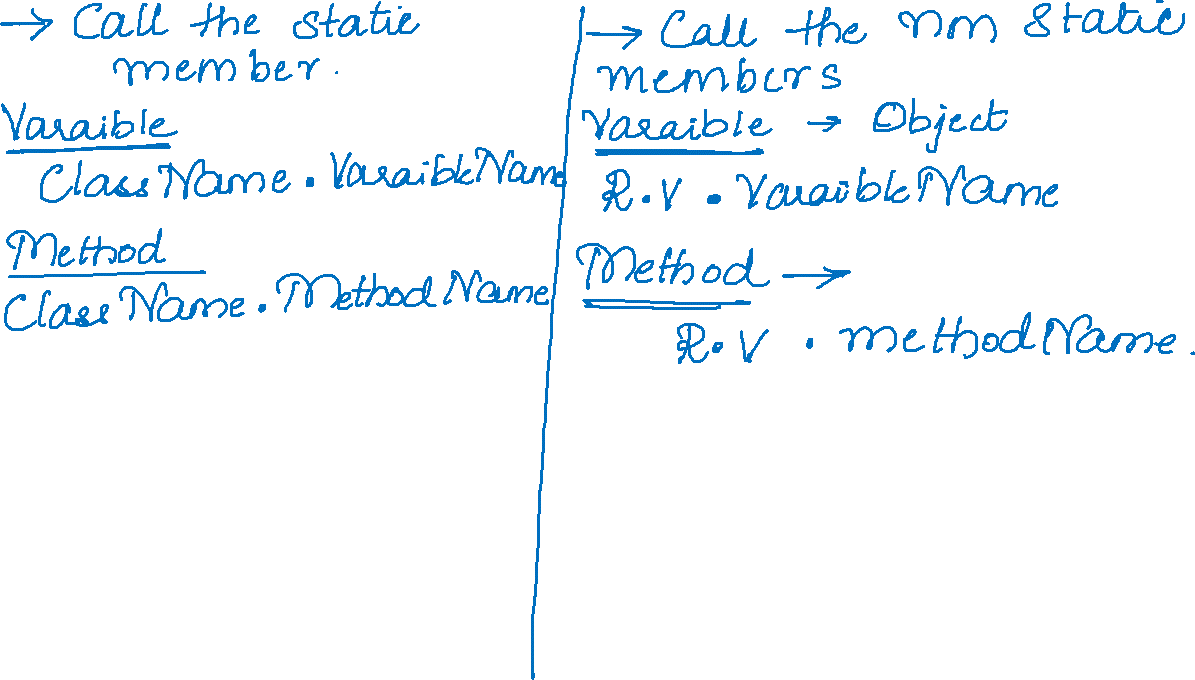 → Call the static
member.
Varaible
ClassName.VaraibleName
Method
ClassName.MethodName
→ Call the non static
members
Varaible → Object
R.V.VaraibleName
Method →
R.V.methodName.